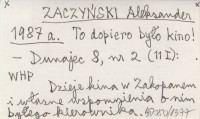 ZACZYŃSKI Aleksander
1987 a. To dopiero było kino!
– Dunajec 8, nr 2 (11 I):
WHP
Dzieje kina w Zakopanem
i własne wspomnienia o nim
byłego kierownika.